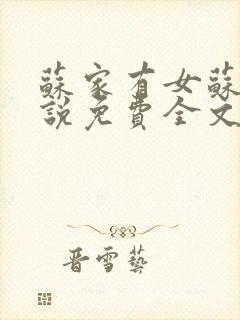 蘇家有女蘇
說免費全文
晉雪藝